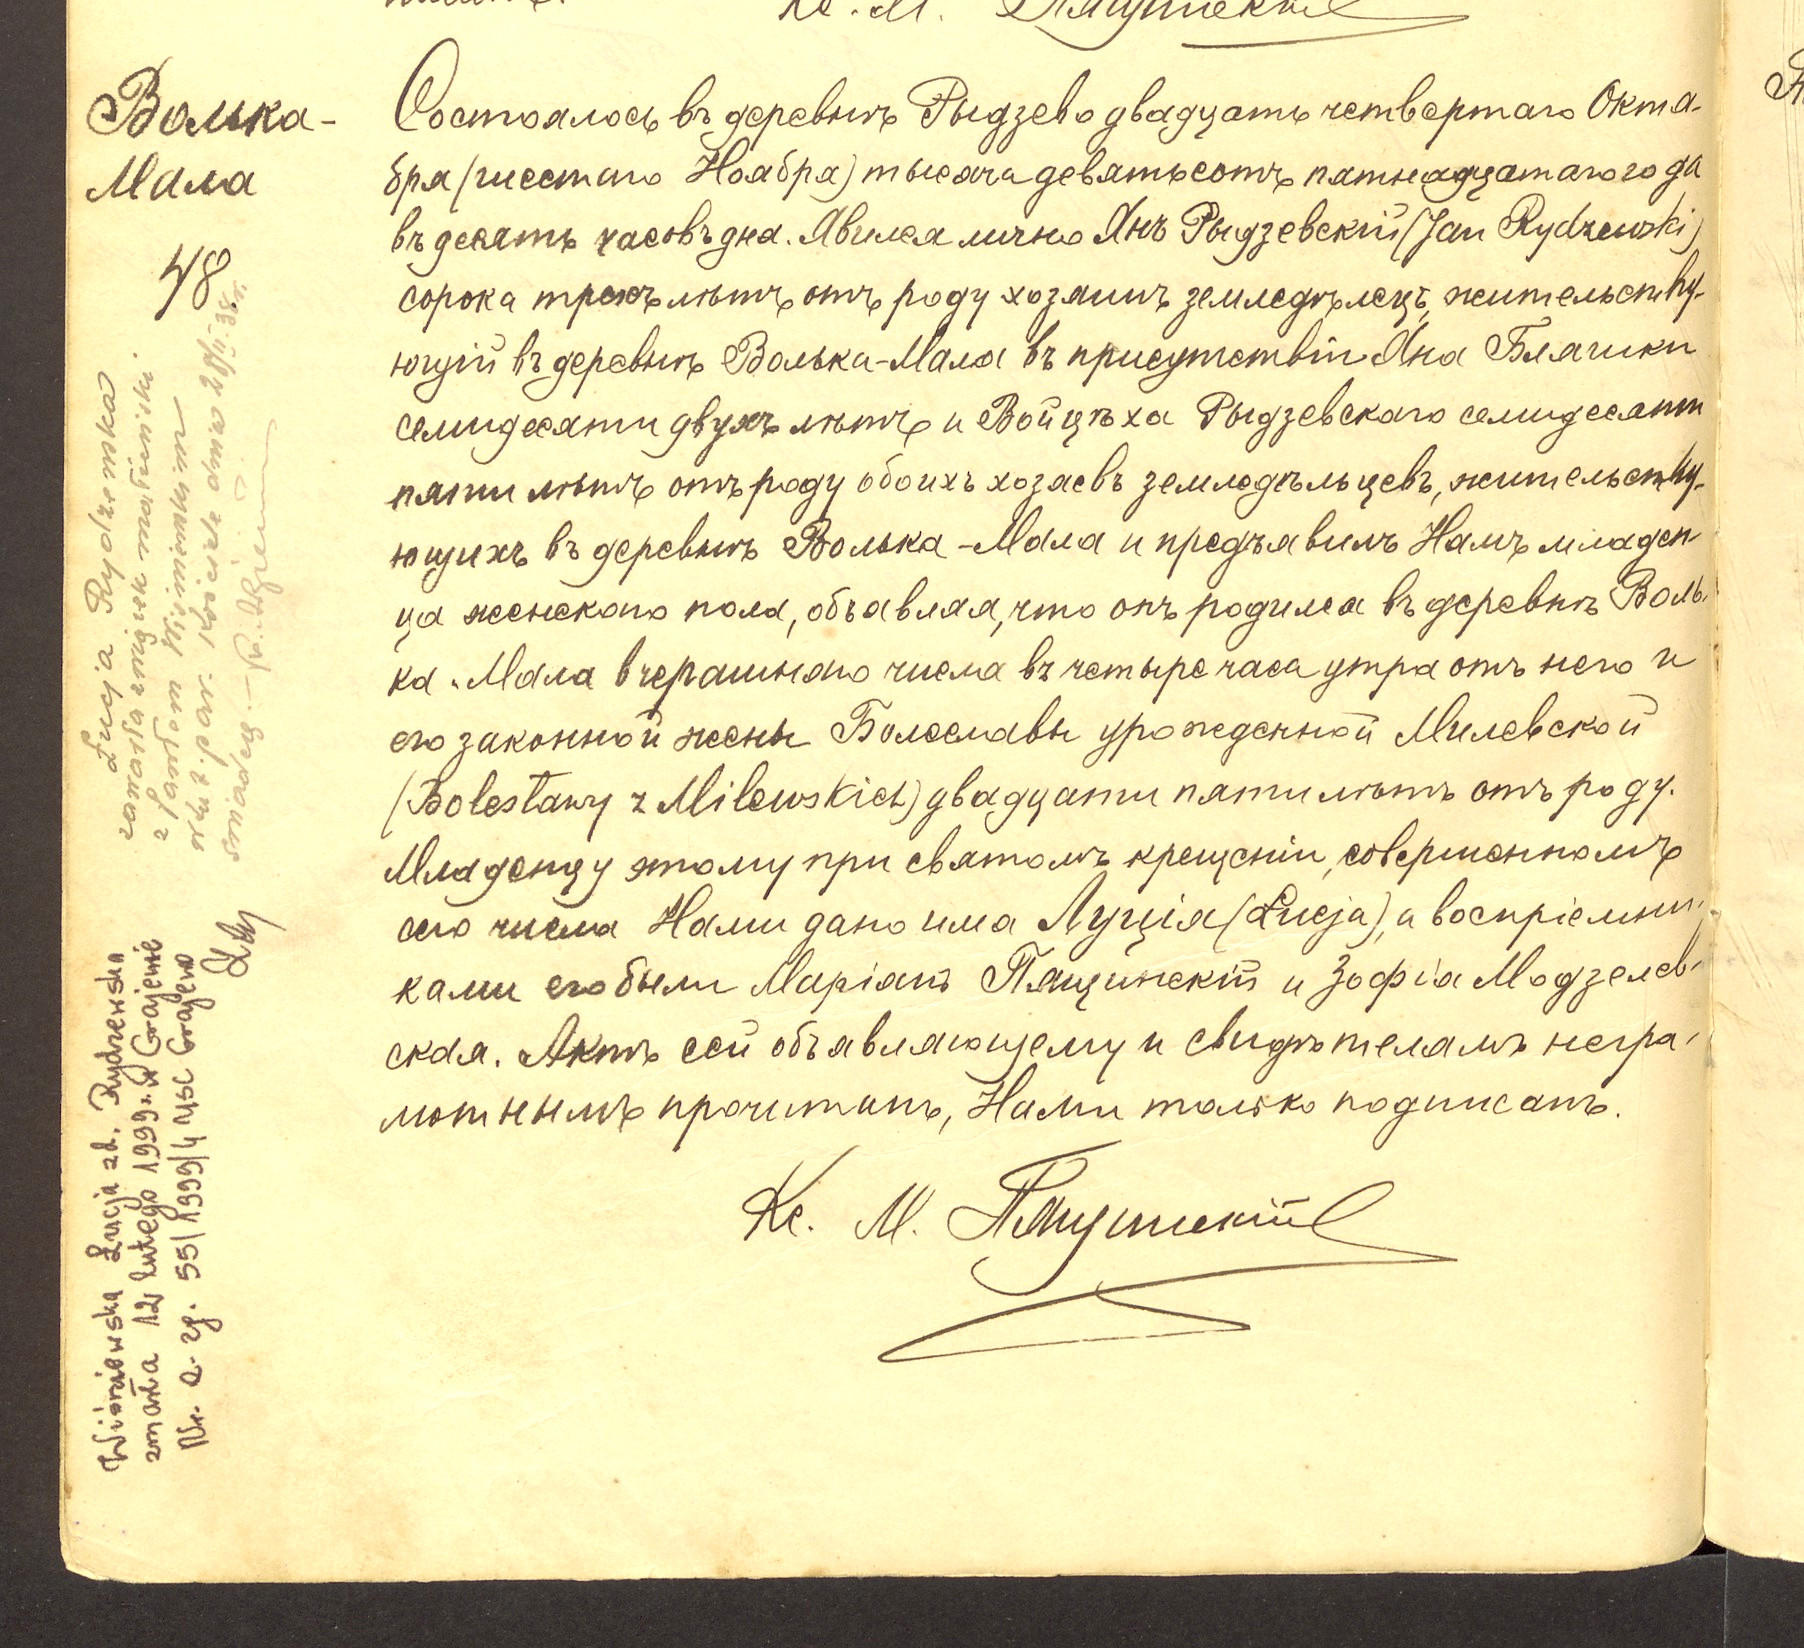 Кс. М. Пящинскій
Волька-
Мала
48.
Состоялось въ деревнѣ Рыдзево двадцать четвертаго Октя-
бря (шестаго Ноября) тысяча девятьсотъ пятнадцатаго года
въ десять часовъ дня. Явился лично Янъ Рыдзевскій (Jan Rydzewski)
сорока трехъ лѣтъ отъ роду хозяинъ земледѣлецъ, жительству-
ющій въ деревнѣ Волька-Мала въ присутствіи Яна
семидесяти двухъ лѣтъ и Войцѣха Рыдзевскаго семидесяти
пяти лѣтъ отъ роду обоихъ хозяевъ земледѣльцевъ, жительству-
ющихъ въ деревнѣ Волька-Мала и предъявилъ Намъ младен-
ца женскаго пола, объявляя, что онъ родился въ деревнѣ Воль-
ка-Мала вчерашняго числа въ четыре часа утра отъ него и
его законной жены Болеславы урожденной Милевской
(Bolesławy z Milewskich) двадцати пяти лѣтъ отъ роду.
Младенцу этому при святомъ крещеніи, совершенномъ
сего числа Нами дано имя Луція (Łucja), а воспріемни-
ками его были Маріанъ Пящинскій и Зофія Модзелев-
ская. Актъ сей объявляющему и свидѣтелямъ негра-
мотнымъ прочитанъ, Нами только подписанъ.
Кс. М. Пящинскій
Łucja Rydzewska
zawarła związek małżeński
z Janem Wiśniewskim
w r. par. dnia
świadczy - Ks.
Wiśniewska Łucja zd. Rydzewska
zmarła 12 lutego 1999 r. w Grajewie
Nr. a. zg. 55/1999/4 USC Grajewo